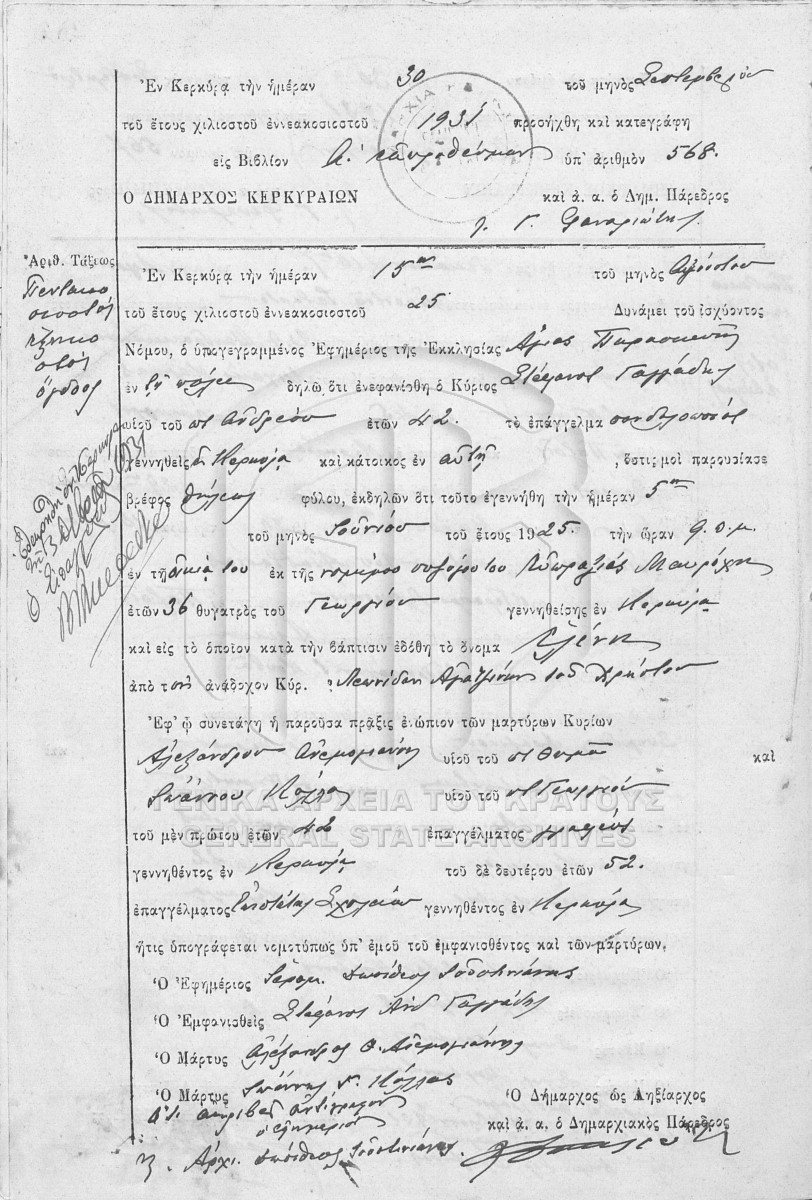 Ἐν Κερκύρᾳ τὴν ἡμέραν 30 τοῦ μηνὸς Σεπτεμβρίου
τοῦ ἔτους χιλιοστοῦ ἐννεακοσιοστοῦ 1931 προσήχθη καὶ κατεγράφη
εἰς Βιβλίον ὑπ' ἀριθμὸν 568.
Ὁ ΔΗΜΑΡΧΟΣ ΚΕΡΚΥΡΑΙΩΝ καὶ ἀ. ἀ. ὁ Δημ. Πάρεδρος
Γ. Φαναριώτης
Ἀριθ. Τάξεως
Πεντακο
σιοστὸς
ἑξηκο
στὸς
ὄγδοος
Ἐν Κερκύρᾳ τὴν ἡμέραν 15ην τοῦ μηνὸς Αὐγούστου
τοῦ ἔτους χιλιοστοῦ ἐννεακοσιοστοῦ 25 Δυνάμει τοῦ ἰσχύοντος
Νόμου, ὁ ὑπογεγραμμένος Ἐφημέριος τῆς Ἐκκλησίας Ἁγίας Παρασκευῆς
ἐν τῇ πόλει δηλῶ ὅτι ἐνεφανίσθη ὁ Κύριος Στέφανος Γαγγάδης
υἱοῦ τοῦ ποτ Ἀνδρέου ἐτῶν 42 τὸ ἐπάγγελμα
γεννηθεὶς ἐν Κερκύρᾳ καὶ κάτοικος ἐν αὐτῇ, ὅστις μοὶ παρουσίασε
βρέφος θήλεος φύλου, ἐκδηλῶν ὅτι τοῦτο ἐγεννήθη τὴν ἡμέραν 5ην
τοῦ μηνὸς Ἰουνίου τοῦ ἔτους 1925 τὴν ὥραν 9 π.μ.
ἐν τῇ οἰκίᾳ του ἐκ τῆς νομίμου συζύγου του Εὐπραξίας Μαυρόχη
ἐτῶν 36 θυγατρὸς τοῦ Γεωργίου γεννηθείσης ἐν Κερκύρᾳ
καὶ εἰς τὸ ὁποῖον κατὰ τὴν βάπτισιν ἐδόθη τὸ ὄνομα Ἑλένη
ἀπὸ τὸν ἀνάδοχον Κύρ. Λεωνίδαν τοῦ Χρήστου
Ἐφ' ᾧ συνετάγη ἡ παροῦσα πρᾶξις ἐνώπιον τῶν μαρτύρων Κυρίων
Ἀλεξάνδρου Ἀνεμογιάννη υἱοῦ τοῦ ποτ Θωμᾶ καὶ
Ἰωάννου Κόλλα υἱοῦ τοῦ ποτ Γεωργίου
ΓΕΝΙΚΑ ΑΡΧΕΙΑ ΤΟΥ ΚΡΑΤΟΥΣ
GENERAL STATE ARCHIVES
τοῦ μὲν πρώτου ἐτῶν 42 ἐπαγγέλματος γραφεὺς
γεννηθέντος ἐν Κερκύρᾳ τοῦ δὲ δευτέρου ἐτῶν 52.
ἐπαγγέλματος Ἐπιστάτης Σχολείου γεννηθέντος ἐν Κερκύρᾳ
ἥτις ὑπογράφεται νομοτύπως ὑπ' ἐμοῦ τοῦ ἐμφανισθέντος καὶ τῶν μαρτύρων.
Ὁ Ἐφημέριος Ἱερομ. Δωσίθεος
Ὁ Ἐμφανισθεὶς Στέφανος Ἀνδ Γαγγάδης
Ὁ Μάρτυς Ἀλέξανδρος Θ. Ἀνεμογιάννης
Ὁ Μάρτυς Ἰωάννης Γ. Κόλλας
Ὁ Δήμαρχος ὡς Ληξίαρχος
ἀκριβὲς ἀντίγραφον
καὶ ἀ. ἀ. ὁ Δημαρχιακὸς Πάρεδρος
ὁ ἐφημέριος
Ἀρχι. Δωσίθεος